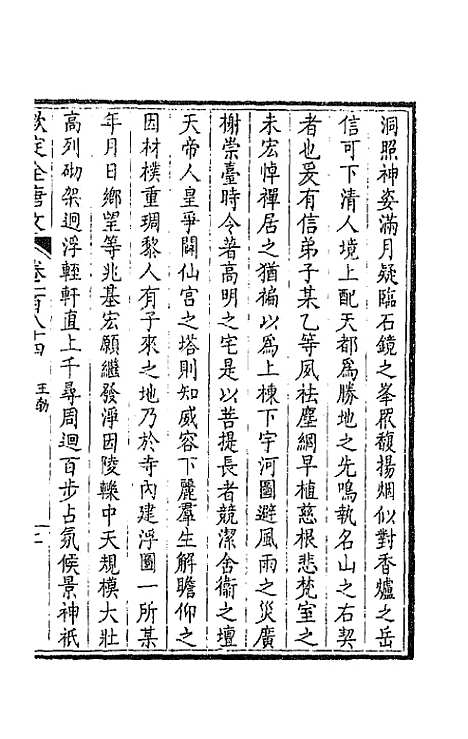 洞照神姿滿月疑臨石鏡之峯眾馥揚烟似對香爐之岳
信可下清人境上配天都為勝地之先鳴執名山之右契
者也爰有信弟子某乙等夙袪塵綱早植慈根悲梵室之
未宏悼禪居之猶褊以為上棟下宇河圖避風雨之災廣
榭崇臺時令著高明之宅是以菩提長者競潔舍衛之壇
天帝人皇爭闢仙宮之塔則知威容下麗羣生解瞻仰之
因材樸重琱黎人有子來之地乃於寺內建浮圖一所某
年月日鄉望等兆基宏願繼發淨因陵轢中天規模大壯
高列砌架迴浮輊軒直上千尋周迴百步占氛候景神祇
欽定全唐文 卷一百八十四 王勃